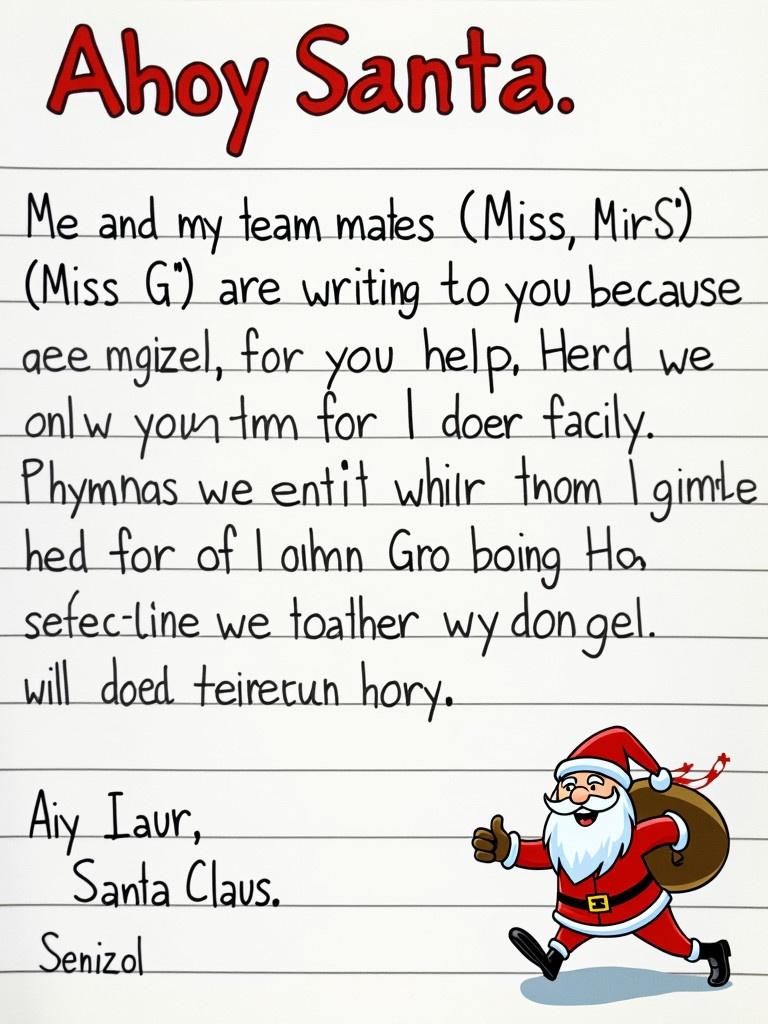 Ahoy Santa.
Me and my team mates (Miss, MirS')
(Miss G") are writing to you because
aee mgizel, for you help. Herd we
onlw youn tmn for I doer facily.
Phymnas we entit whilr thom I gimtle
hed for of I olhmn Gro boing Ha
sefec-line we toather wy don gel.
will doed teirecun hory.
Aiy Iaur,
Santa Claus.
Senizol